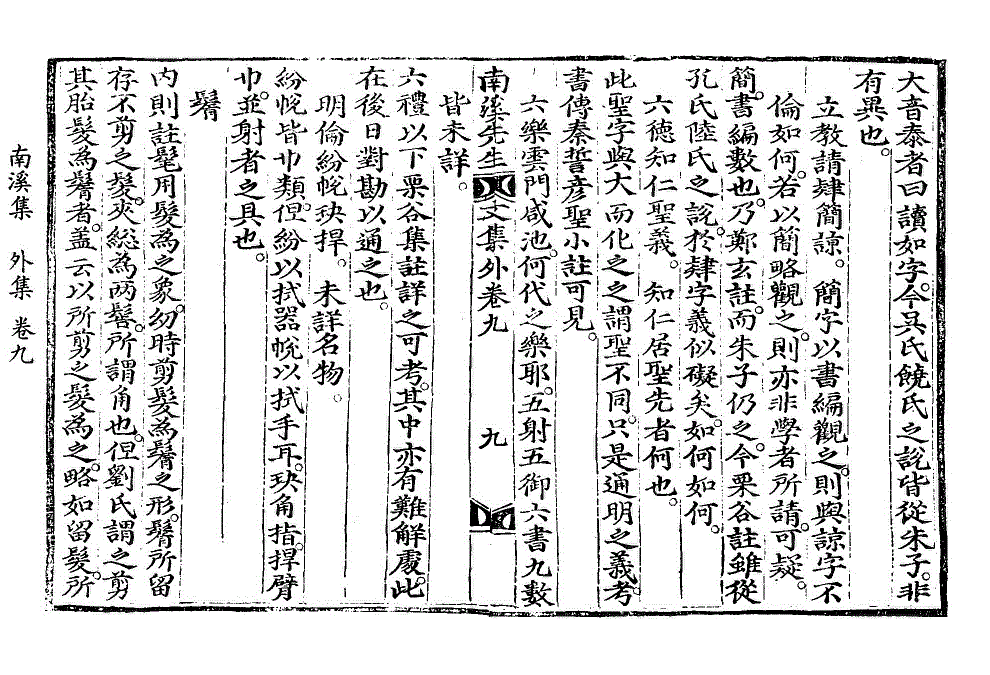 大音泰者曰讀如字。今吳氏饒氏之說皆從朱子。非
有異也。
立敎請肄簡諒。簡字以書編觀之。則與諒字不
倫如何。若以簡略觀之。則亦非學者所請。可疑。
簡。書編數也。乃鄭玄註。而朱子仍之。今栗谷註雖從
孔氏陸氏之說。於肄字義似礙矣。如何如何。
六德知仁聖義。知仁居聖先者何也。
此聖字與大而化之之謂聖不同。只是通明之義。考
書傳秦誓彦聖小註可見。
六樂雲門咸池。何代之樂耶。五射五御六書九數
南溪先生文集外卷九 九
皆未詳。
六禮以下栗谷集註詳之可考。其中亦有難解處。此
在後日對勘以通之也。
明倫紛帨。玦捍。未詳名物。
紛帨皆巾類。但紛以拭器帨以拭手耳。玦角指。捍臂
巾。並射者之具也。
鬌
內則註髦用髮爲之象。幼時剪髮爲鬌之形。鬌所留
存不剪之髮。夾緫爲兩髻。所謂角也。但劉氏謂之剪
其胎髮爲鬌者。盖云以所剪之髮爲之。略如留髮。所
南溪集 外集 卷九